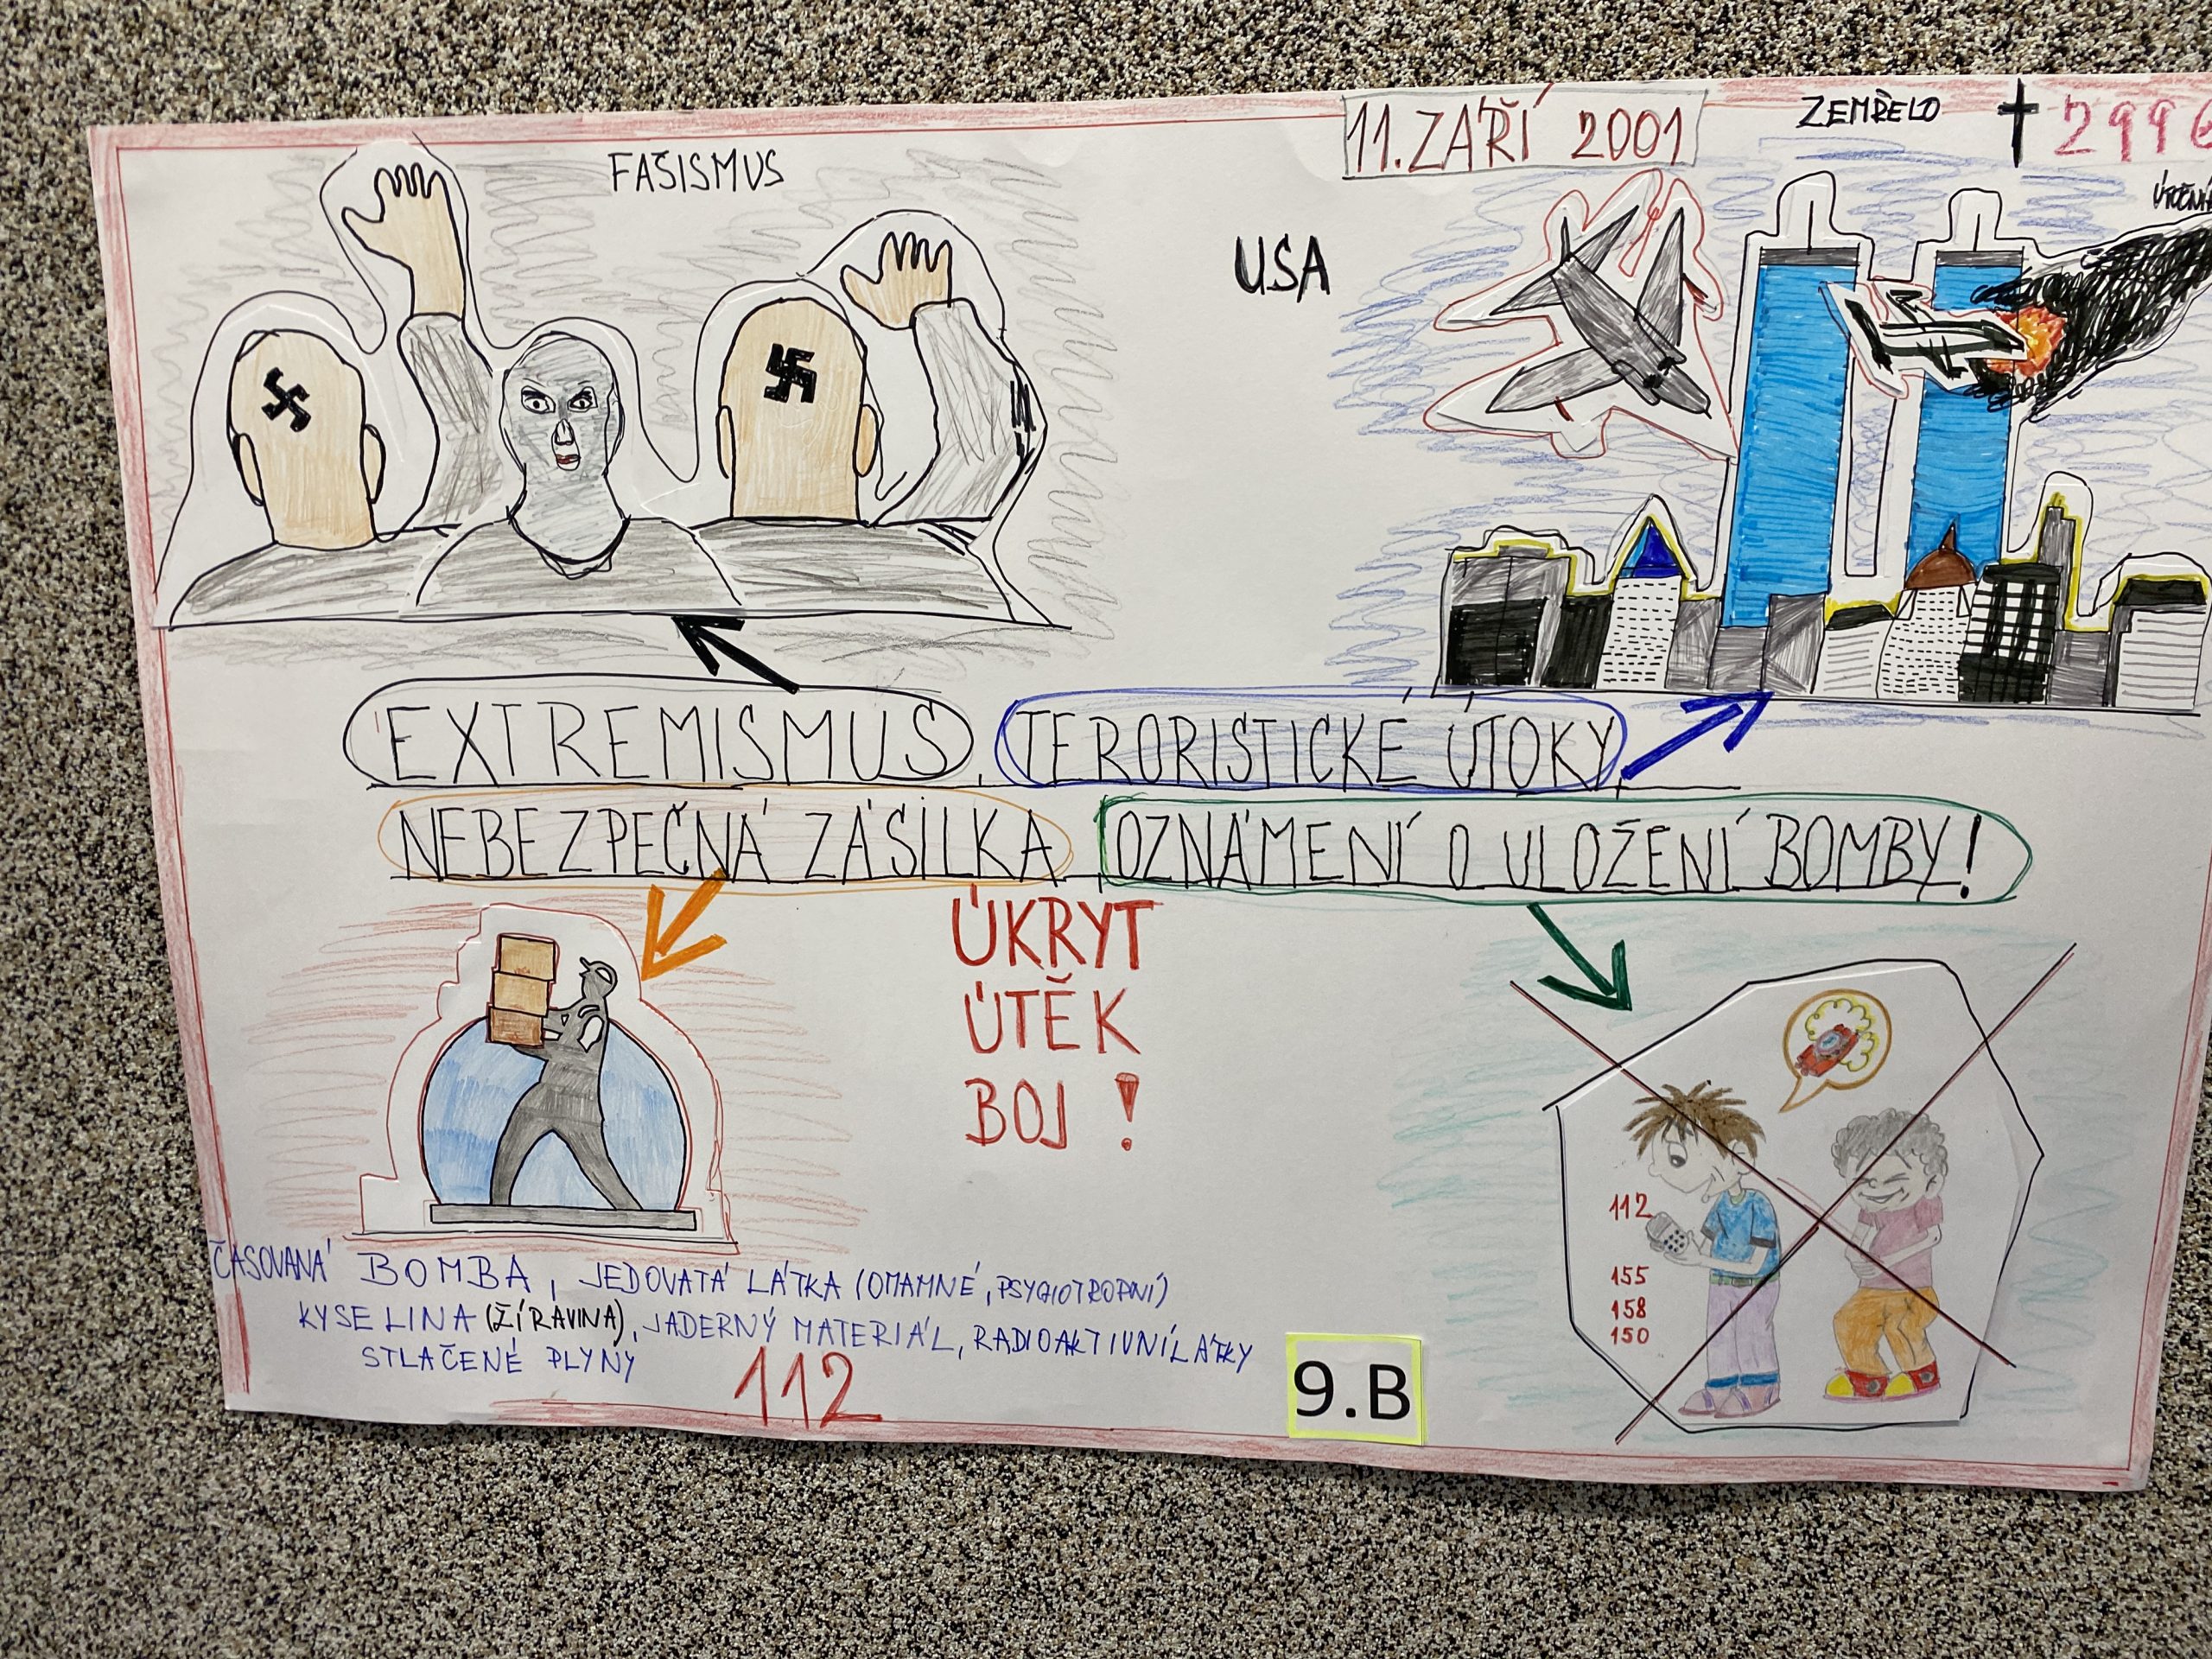 FAŠISMUS
11. ZÁŘÍ 2001
ZEMŘELO
2996
USA
EXTREMISMUS, TERORISTICKÉ ÚTOKY
NEBEZPEČNÁ ZÁSILKA OZNÁMENÍ O ULOŽENÍ BOMBY!
ÚKRYT
ÚTĚK
BOJ!
112
155
158
150
ČASOVANÁ BOMBA, JEDOVATÁ LÁTKA (OMAMNÉ, PSYCHOTROPNÍ)
KYSELINA (ŽÍRAVINA), JADERNÝ MATERIÁL, RADIOAKTIVNÍ LÁTKY
STLAČENÉ PLYNY
112
9.B